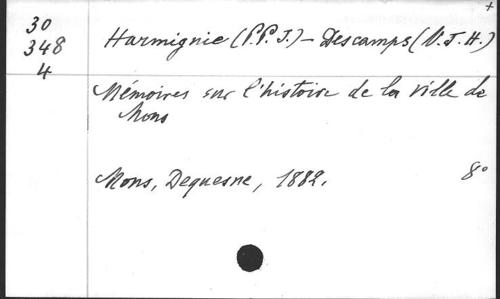 +
30
348
4
Harmignie (P.P.J.) – Descamps (V.J.H.)
Mémoires sur l'histoire de la ville de
Mons
Mons, Dequesne, 1882.
8°